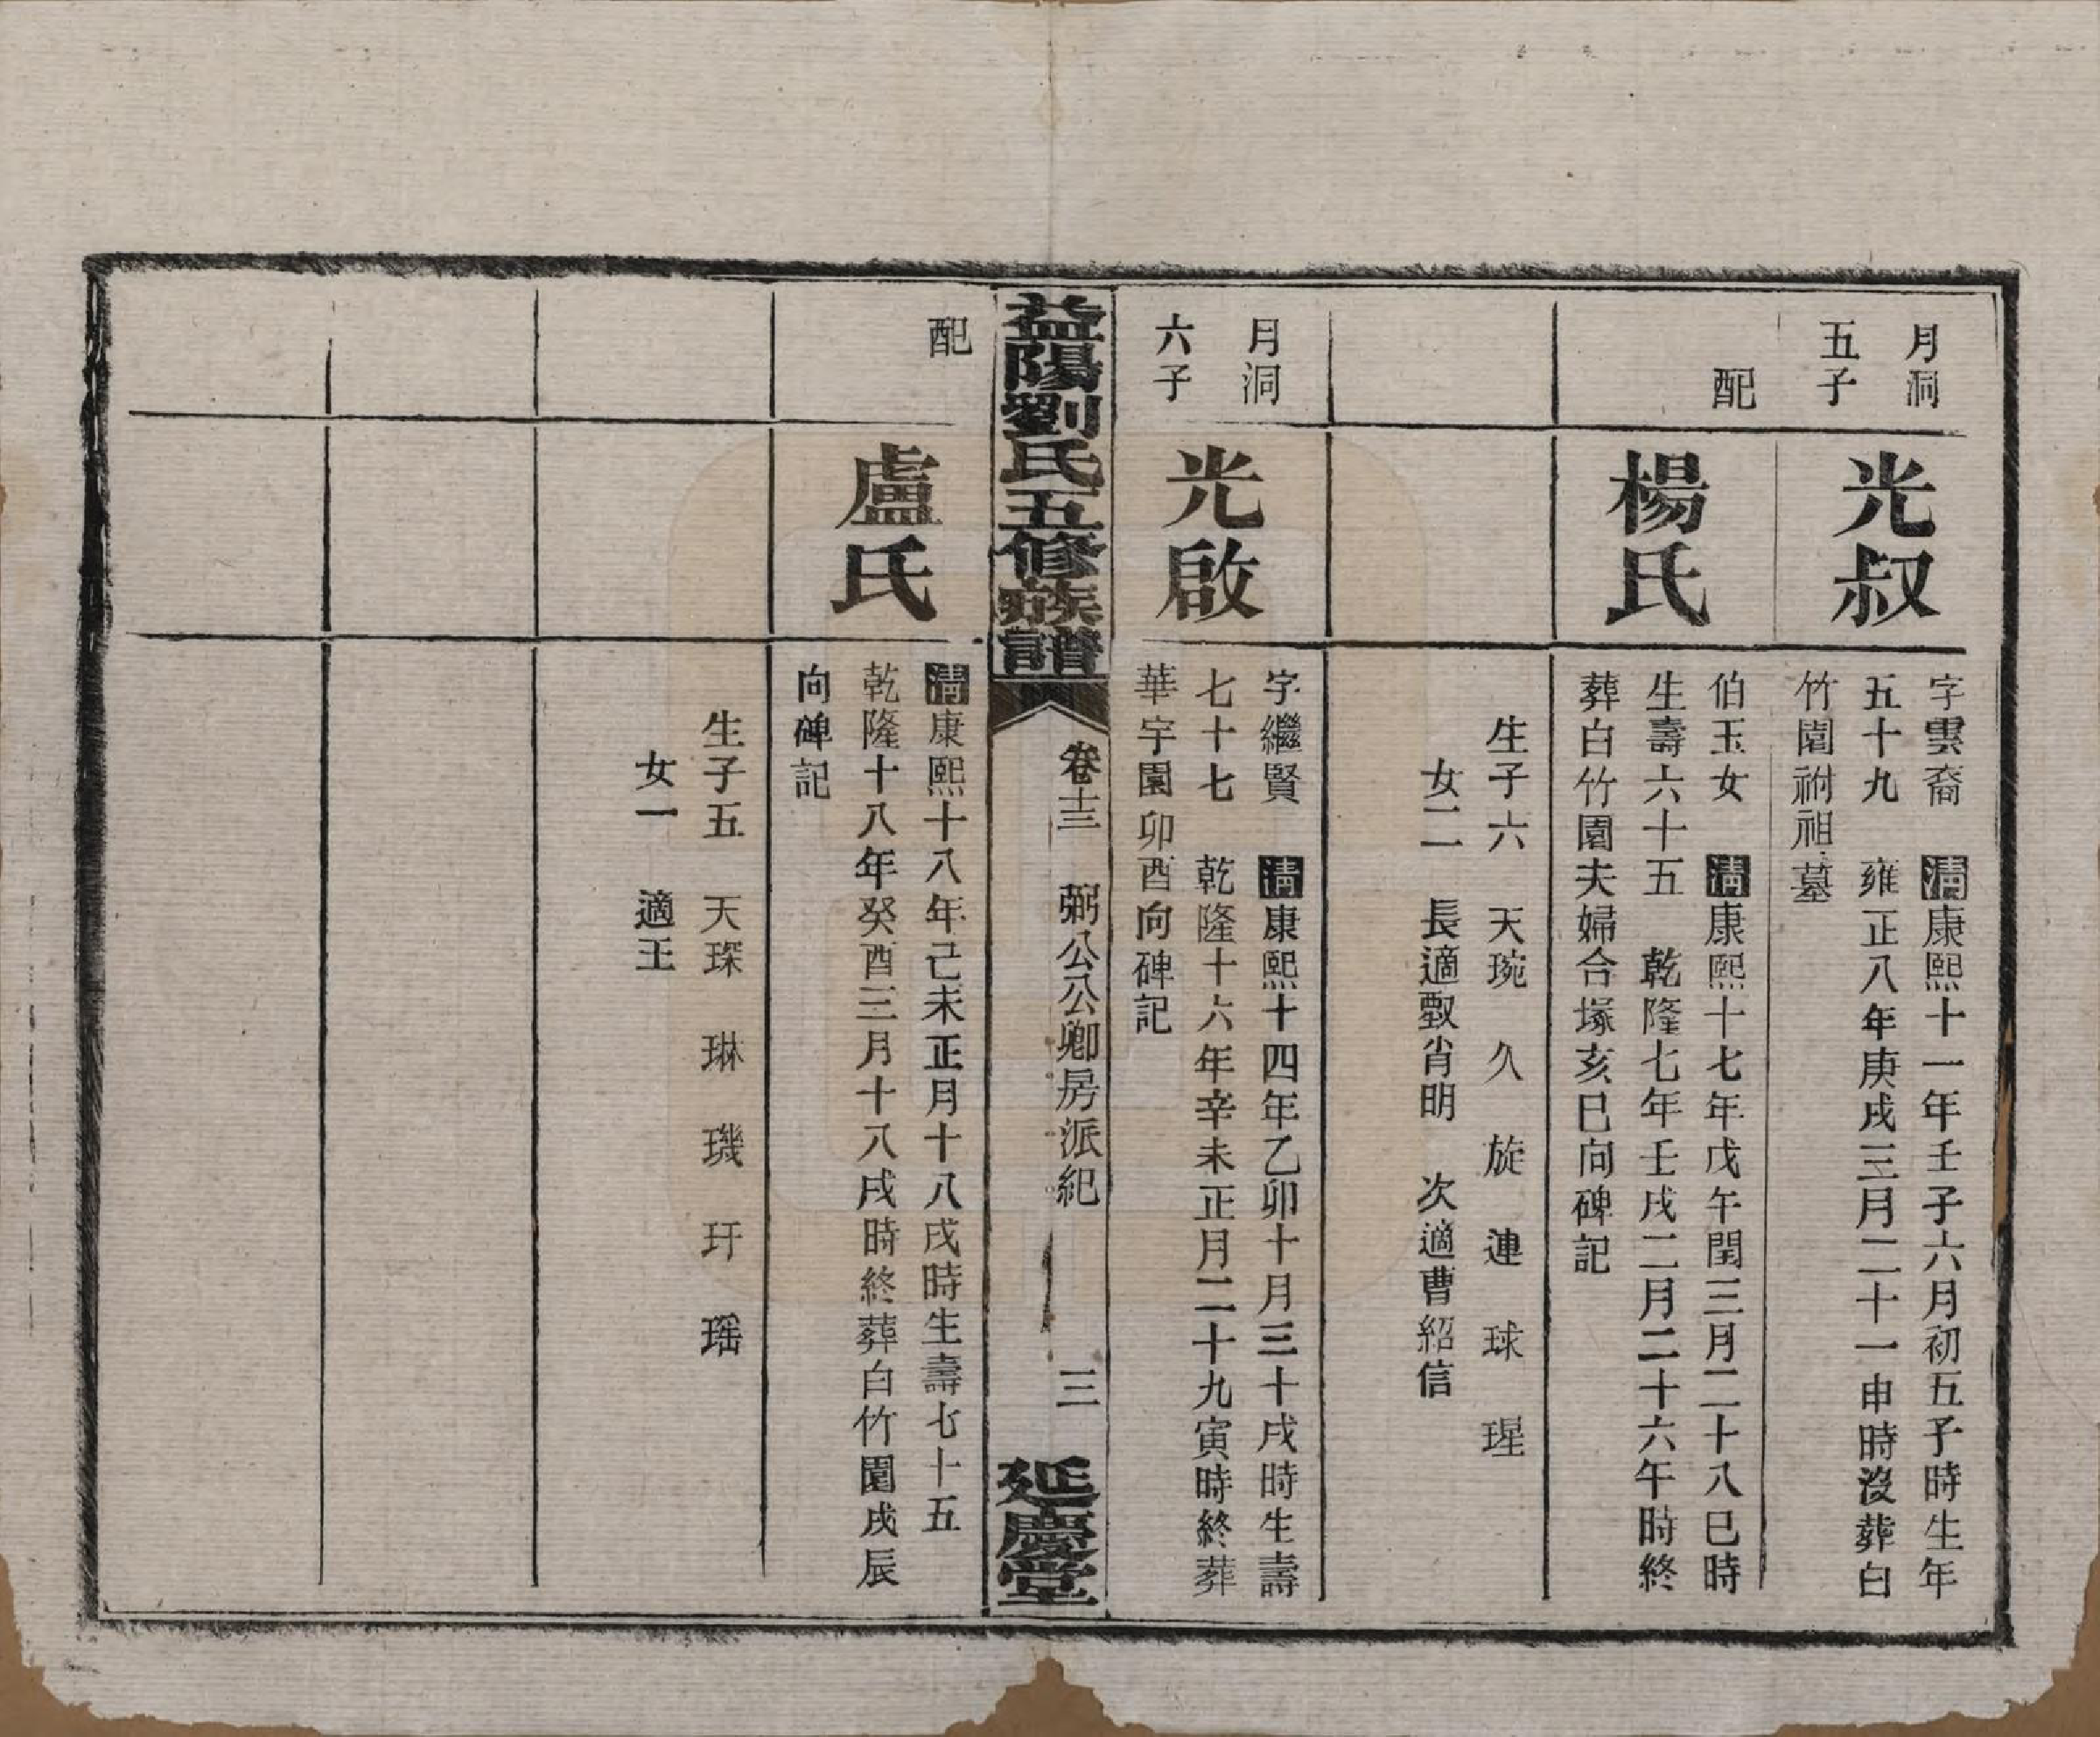 月洞
五子
光叔
字雲裔　清康熙十一年壬子六月初五子時生年
五十九　雍正八年庚戌三月二十一申時沒葬白
竹園祔祖墓
配
楊氏
伯玉女　清康熙十七年戊午閏三月二十八巳時
生壽六十五　乾隆七年壬戌二月二十六午時終
葬白竹園夫婦合塚亥巳向碑記
生子六　天琬　久　旋　連　球　瑆
女二　長適肖明　次適曹紹信
月洞
六子
光啟
字繼賢　清康熙十四年乙卯十月三十戌時生壽
七十七　乾隆十六年辛未正月二十九寅時終葬
華宇園卯酉向碑記
益陽劉氏五修族譜
卷十三　弼公公卿房派紀　三
延慶堂
配
盧氏
清康熙十八年己未正月十八戌時生壽七十五
乾隆十八年癸酉三月十八戌時終葬白竹園戌辰
向碑記
生子五　天琛　琳　璣　玕　瑶
女一　適王